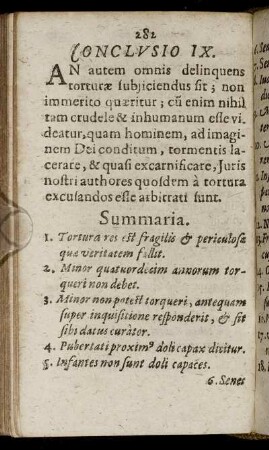 282
CONCLVSIO IX.
AN autem omnis delinquens
torturæ subjiciendus sit; non
immerito quæritur; cũ enim nihil
tam crudele & inhumanum esse vi
deatur, quam hominem, ad imagi
nem Dei conditum, tormentis la-
cerare, & quasi excarnificare, Juris
nostri authores quosdem à tortura
excusandos esse arbitrati sunt.
Summaria.
1. Torturæ res est fragilis & periculosa
quæ veritatem fallit.
2. Minor quatuordecim annorum tor-
queri non debet.
3. Minor non potest torqueri, antequam
super inquisitione responderit, & sit
sibi datus curator.
4. Pubertati proximꝰ doli capax dicitur.
5. Infantes non sunt doli capaces.
6. Senes